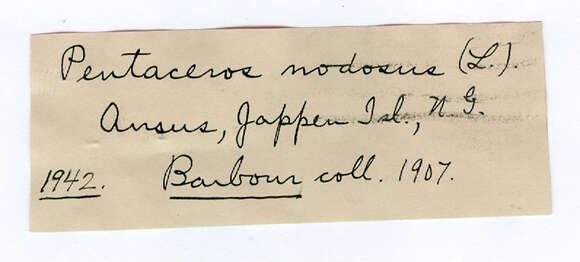 Pentaceros nodosus (L.).
Ansus, Jappen Isl., N.G.
1942. Barbour coll. 1907.